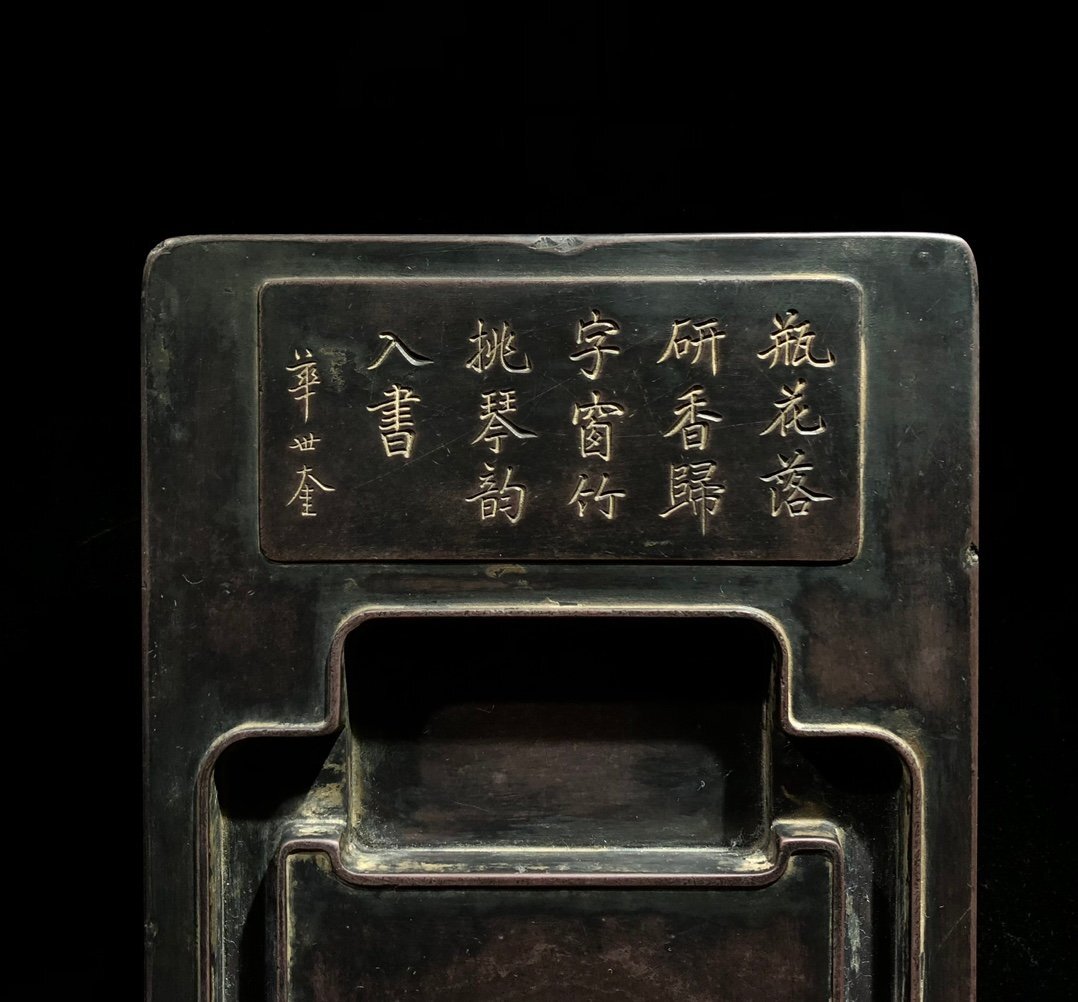 瓶花落
研香歸
字窗竹
挑琴韵
入書
華世奎